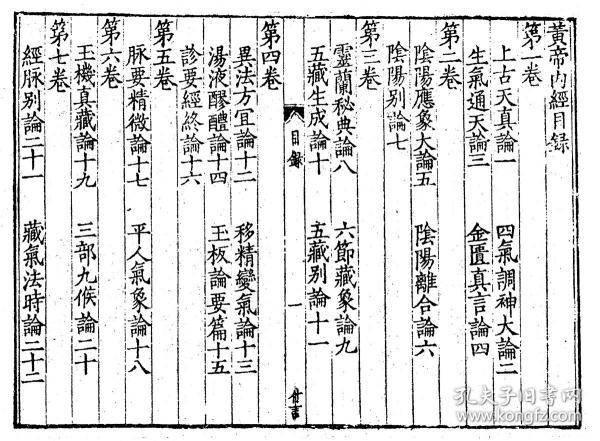 黃帝內經目録
第一卷
上古天真論一　四氣調神大論二
生氣通天論三　金匱真言論四
第二卷
陰陽應象大論五　陰陽離合論六
陰陽别論七
第三卷
靈蘭秘典論八　六節藏象論九
五藏生成論十　五藏别論十一
目録
一
第四卷
異法方冝論十二　移精變氣論十三
湯液醪醴論十四　玉板論要篇十五
診要經終論十六
第五卷
脉要精微論十七　平人氣象論十八
第六卷
玉機真藏論十九　三部九候論二十
第七卷
經脉别論二十一　藏氣法時論二十二
孔夫子旧书网
www.kongfz.com